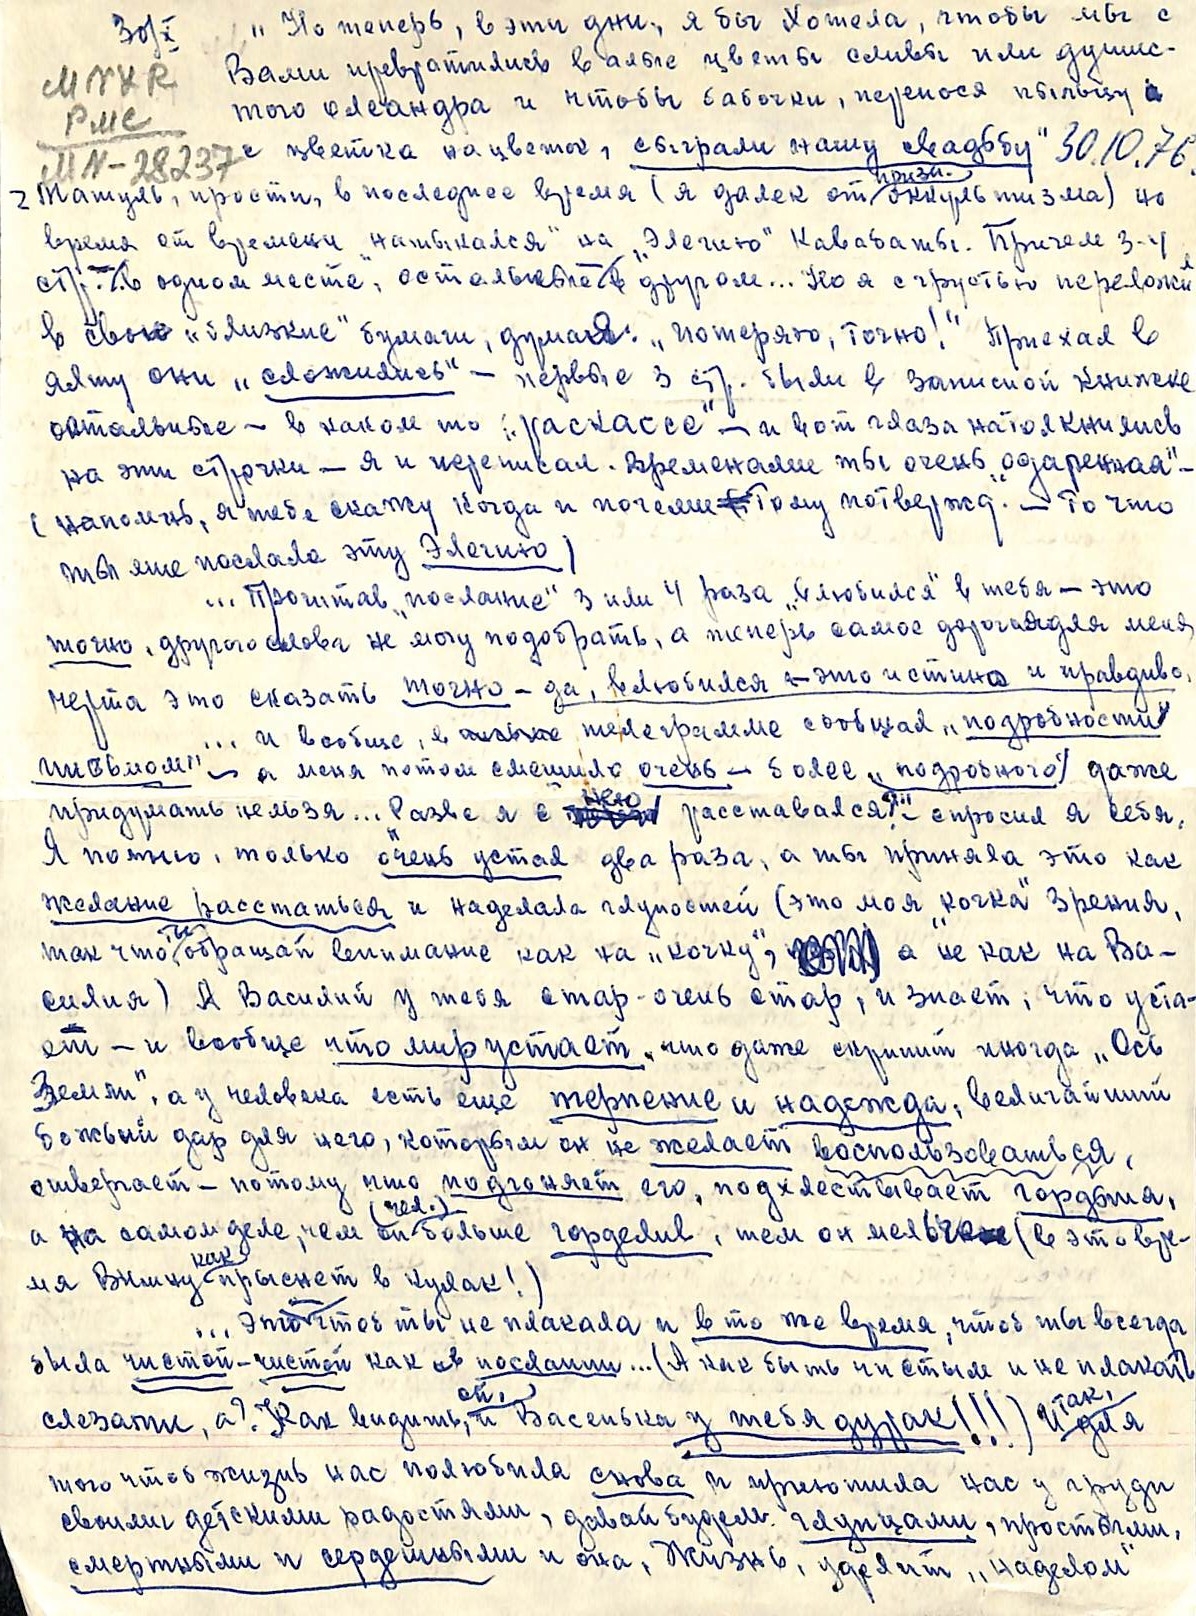 30/X „Но теперь, в эти дни, я бы хотела, чтобы мы с
Вами превратились в алые цветы сливы или душис-
того олеандра и чтобы бабочки, перенося пыльцу
с цветка на цветок, сыграли нашу свадьбу" 30.10.76.
MNXR
РМС
MN-28237
Татуль, прости, в последнее время (я далек от оккультизма) но
время от времени „натыкался" на „Элегию" Кавабаты. Причем 3-4
стр. „в одном месте", остальные в другом... Но я с грустью переложил
в свои „близкие" бумаги, думая: „потеряю, точно!" Приехал в
Ялту они „сложились" – первые 3 стр. были в записной книжке
остальные – в каком то „раскассе" – и вот глаза натолкнулись
на эти строчки – я и переписал. Временами ты очень „одаренная" –
(напомнь, я тебе скажу когда и почему тому потвержд. – То что
ты мне послала эту Элегию)
... Прочитав „послание" 3 или 4 раза „влюбился" в тебя – это
точно, другого слова не могу подобрать, а теперь самое дорогая для меня
черта это сказать точно – да, влюбился – это истина и правдиво,
... и вообще, в телеграмме сообщал „подробности
письмом" – а меня потом смешило очень – более „подробного" даже
придумать нельзя... Разве я с нею расставался?" – спросил я себя,
Я помню, только очень устал два раза, а ты приняла это как
желание расстаться и наделала глупостей (это моя „кочка" зрения,
так что ты обращай внимание как на „кочку", а не как на Ва-
силия) А Василий у тебя стар – очень стар, и знает, что уста-
ет – и вообще что мир устает, что даже скрипит иногда „Ось
Земли", а у человека есть еще терпение и надежда, величайший
божьий дар для него, которым он не желает воспользоваться,
отвергает – потому что подгоняет его, подхлестывает гордыня,
а на самом деле, чем он (чел.) больше горделив, тем он мельче (в это вре-
мя Вимну как прыснет в кулак!)
... Это чтоб ты не плакала и в то же время, чтоб ты всегда
была чистой-чистой как в послании... (А как быть чистым и не плакать
слезами, а? Как видишь, и Васенька у тебя дурак!!!) Итак, для
того чтоб жизнь нас полюбила снова и приютила нас у груди
своими детскими радостями, давай будем глупцами, простыми,
смертными и сердешными и она, Жизнь, удалит „наделом"